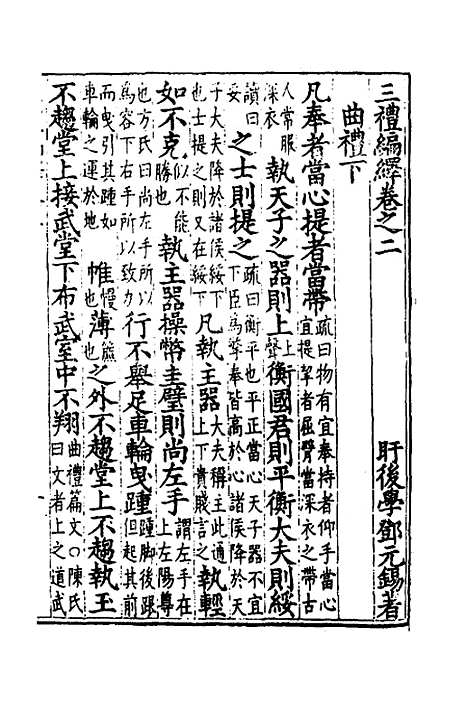 三禮編繹卷之二　盱後學鄧元錫著
曲禮下
凡奉者當心提者當帶疏曰物有宜奉持者仰手當心宜提挈者屈臂當深衣之帶古
人常服深衣　執天子之器則上上聲衡國君則平衡大夫則綏
讀曰妥　之士則提之疏曰衡平也平正當心天子器不宜下臣為擎奉皆高於心諸侯降於天
子大夫降於諸侯綏下也士提之則又在綏下　凡執主器大夫稱主此通上下貴賤言之執輕
如不克似不能勝也　執主器操幣圭璧則尚左手謂左手在上左陽尊
也方氏曰尚左手所以為容下右手所以致力　行不舉足車輪曳踵踵脚後跟但起其前
而曳引其踵如車輪之運於地　帷幔也薄簾也之外不趨堂上不趨執玉
不趨堂上接武堂下布武室中不翔曲禮篇文○陳氏曰文者上之道武